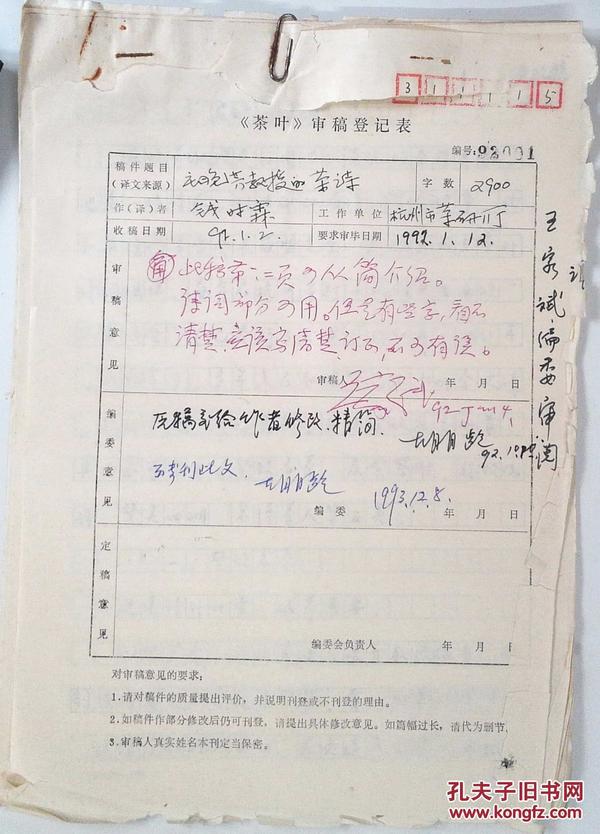 311115
《茶叶》审稿登记表
编号: 92001
稿件题目
(译文来源)
教授的茶诗
字数
2900
作(译)者
钱时霖
工作单位
杭州市茶研所
收稿日期
92.1.2.
要求审毕日期
1992.1.12.
审稿意见
此稿第一、二页可从简介绍。
诗词部分可用。但是有些字,看不
清楚,应该写清楚,订正,不可有误。
审稿人
年 月 日
编委意见
原稿寄给作者修改、精简
胡月龄
不拟刊此文
胡月龄
1993.12.8.
编委
年 月 日
定稿意见
编委会负责人
年 月 日
王家斌编委审阅
对审稿意见的要求:
1.请对稿件的质量提出评价,并说明刊登或不刊登的理由。
2.如稿件作部分修改后仍可刊登,请提出具体修改意见。如篇幅过长,请代为删节,
3.审稿人真实姓名本刊定当保密。
孔夫子旧书网
www.kongfz.com